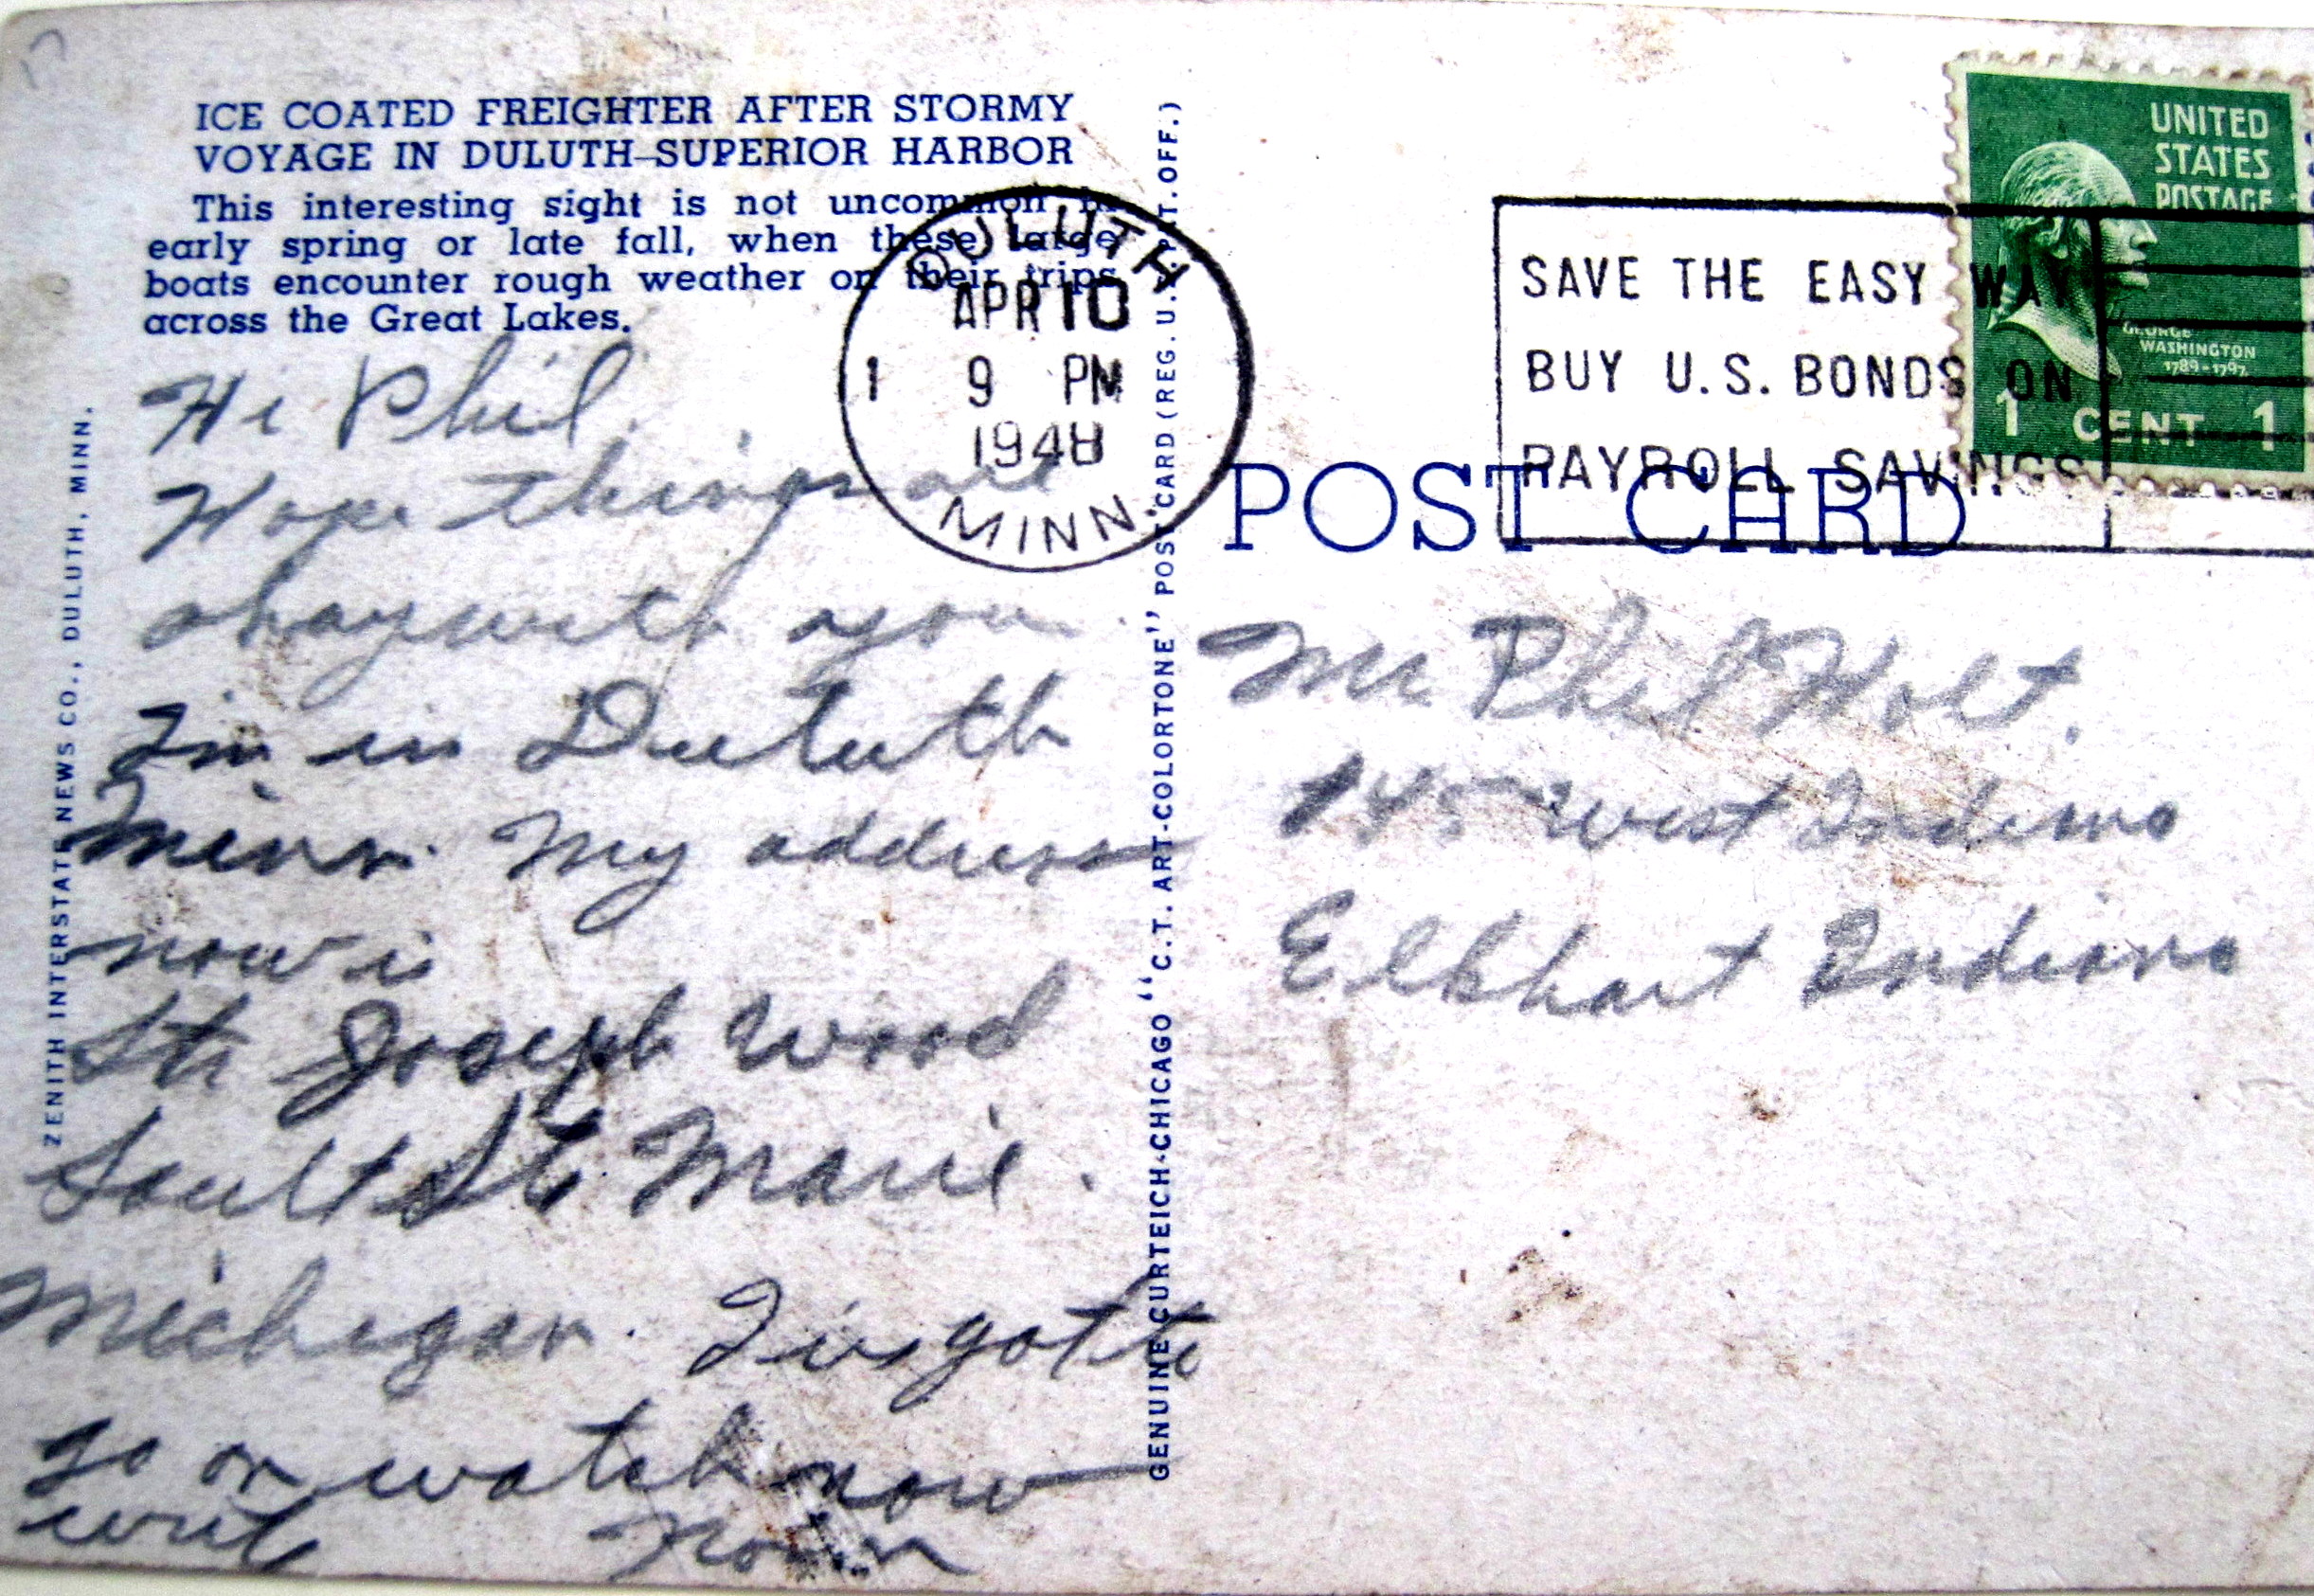 ICE COATED FREIGHTER AFTER STORMY
VOYAGE IN DULUTH–SUPERIOR HARBOR
This interesting sight is not uncommon in
early spring or late fall, when these large
boats encounter rough weather on their trips
across the Great Lakes.
Hi Phil.
Hope things are
okay with you.
I'm in Duluth
Minn. My address
now is
Str Joseph Wood
Sault Ste Marie.
Michigan. I've gotta
go on watch now
write
ZENITH INTERSTATE NEWS CO., DULUTH, MINN.
DULUTH
APR 10
1 9 PM
1948
MINN.
GENUINE CURTEICH-CHICAGO "C.T. ART-COLORTONE" POST CARD (REG. U.S. PAT. OFF.)
SAVE THE EASY WAY
BUY U.S. BONDS ON
PAYROLL SAVINGS
UNITED
STATES
POSTAGE
GEORGE
WASHINGTON
1789-1797
1 CENT 1
POST CARD
Mr. Phil Holt.
145 West Indiana
Elkhart Indiana